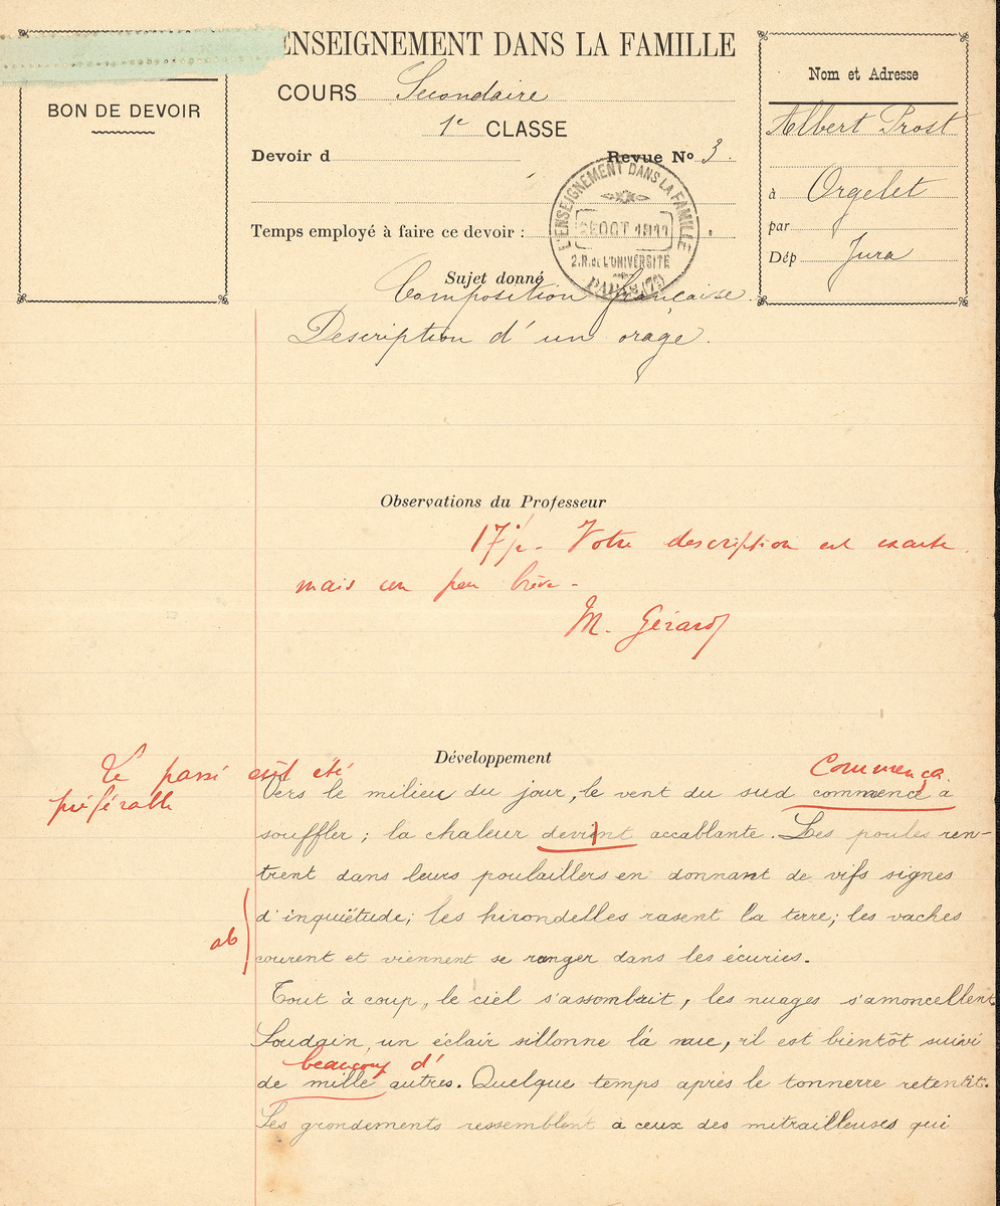 ENSEIGNEMENT DANS LA FAMILLE
BON DE DEVOIR
COURS Secondaire
1e CLASSE
Devoir d
Revue No 3.
Temps employé à faire ce devoir :
Nom et Adresse
Albert Prost
à Orgelet
par
Dép Jura
L'ENSEIGNEMENT DANS LA FAMILLE
OCT 1911
2.R.de L'UNIVERSITÉ
PARIS (7e)
Sujet donné
Composition française.
Description d'un orage.
Observations du Professeur
17 Votre description est exacte
mais un peu brève -
M. Gérard
Développement
Le passé eût été
préférable
Commença
Vers le milieu du jour, le vent du sud commença à
souffler ; la chaleur devint accablante. Les poules ren-
trent dans leurs poulaillers en donnant de vifs signes
d'inquiétude; les hirondelles rasent la terre; les vaches
ab
courent et viennent se ranger dans les écuries.
Tout à coup, le ciel s'assombrit, les nuages s'amoncellent
Soudain, un éclair sillonne la nue, il est bientôt suivi
beaucoup d'
de mille autres. Quelque temps après le tonnerre retentit.
Ses grondements ressemblent à ceux des mitrailleuses qui